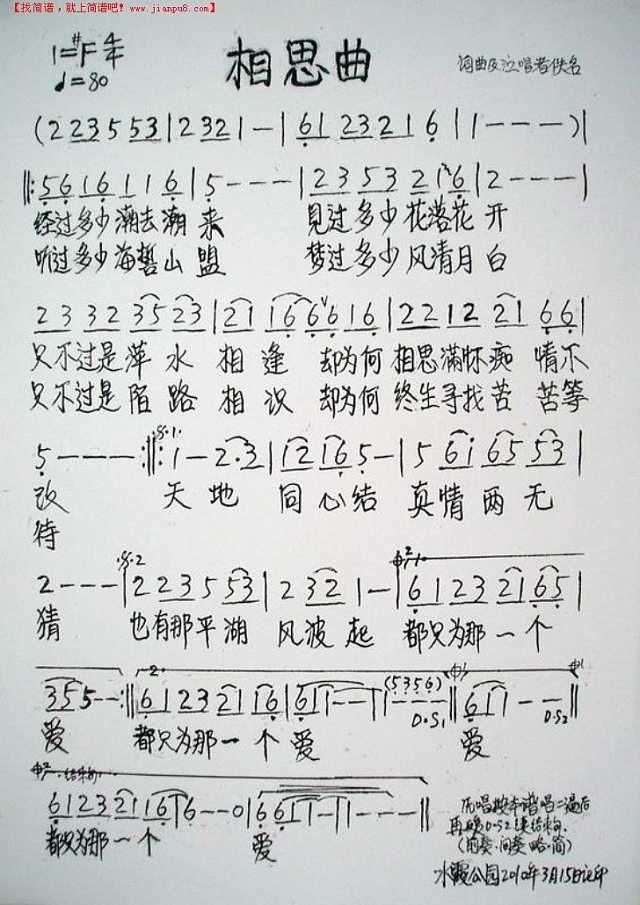 【找简谱，就上简谱吧！www.jianpu8.com】
1=#F 4/4
相思曲
词曲及泣唱者佚名
♩=80
(2 2 3 5 5 3 | 2 3 2 1 - | 6 1 2 3 2 1 6 | 1 - - - )|
‖: 5 6 1 6 1 1 6 | 5 - - - | 2 3 5 3 2 1 6 | 2 - - - |
经过多少潮去潮来 见过多少花落花开
听过多少海誓山盟 梦过多少风清月白
2 3 3 2 3 5 2 3 | 2 1 1 6 6 6 1 6 | 2 2 1 2 2 1 6 6 |
只不过是萍水相逢 却为何相思满怀痴情不
只不过是陌路相识 却为何终生寻找苦苦等
5 - - - :‖: 1 - 2 · 3 | 1 2 1 6 5 - | 5 6 1 6 5 5 3 |
改 天地同心结 真情两无
待
2 - - - | 2 2 3 5 5 3 | 2 3 2 1 - | 6 1 2 3 2 1 6 5 |
猜 也有那平湖风波起 都只为那一个
3 5 5 - - :‖ 6 1 2 3 2 1 1 6 | 6 1 1 - - | 1 - - - (5 3 5 6) ‖ 6 1 1 - - ‖
D.S1 D.S2
爱 都只为那一个爱 爱
结束句
6 1 2 3 2 1 1 6 | 6 - - 0 | 6 6 1 1 - | 1 - - - ‖
都只为那一个 爱
先唱按本谱唱二遍后
(前奏·间奏略·简)
水霞公园2010年3月15日记印